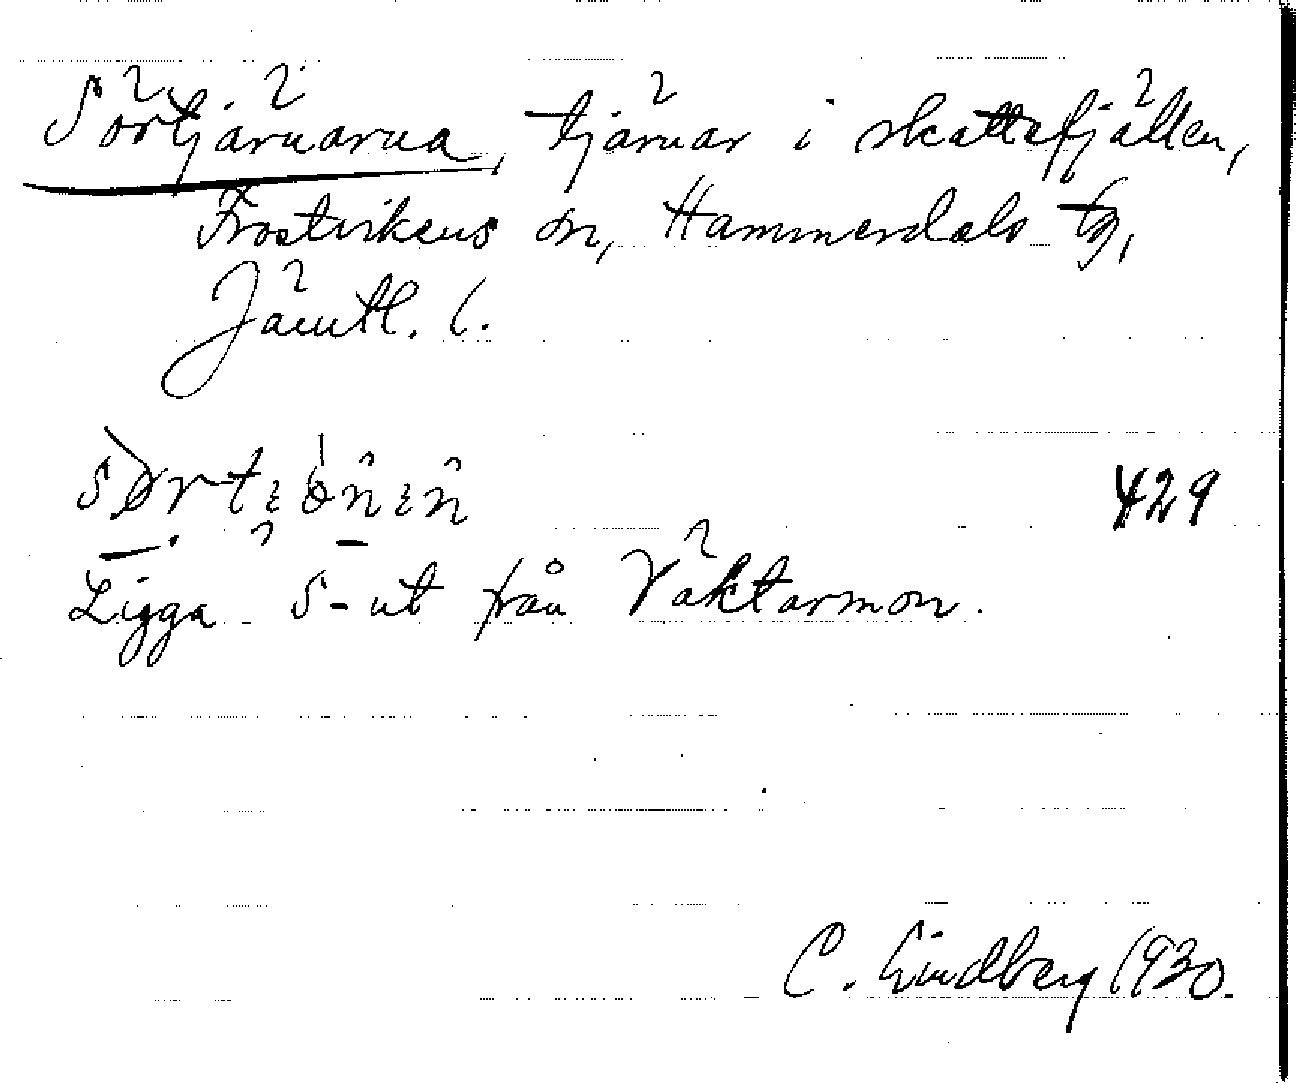 Sörtjärnarna, tjärnar i skattefjällen,
Frostvikens sn, Hammerdals tg,
Jämtl. l.
429
Ligga S-ut från Väktarmon.
C. Lindberg 1930.